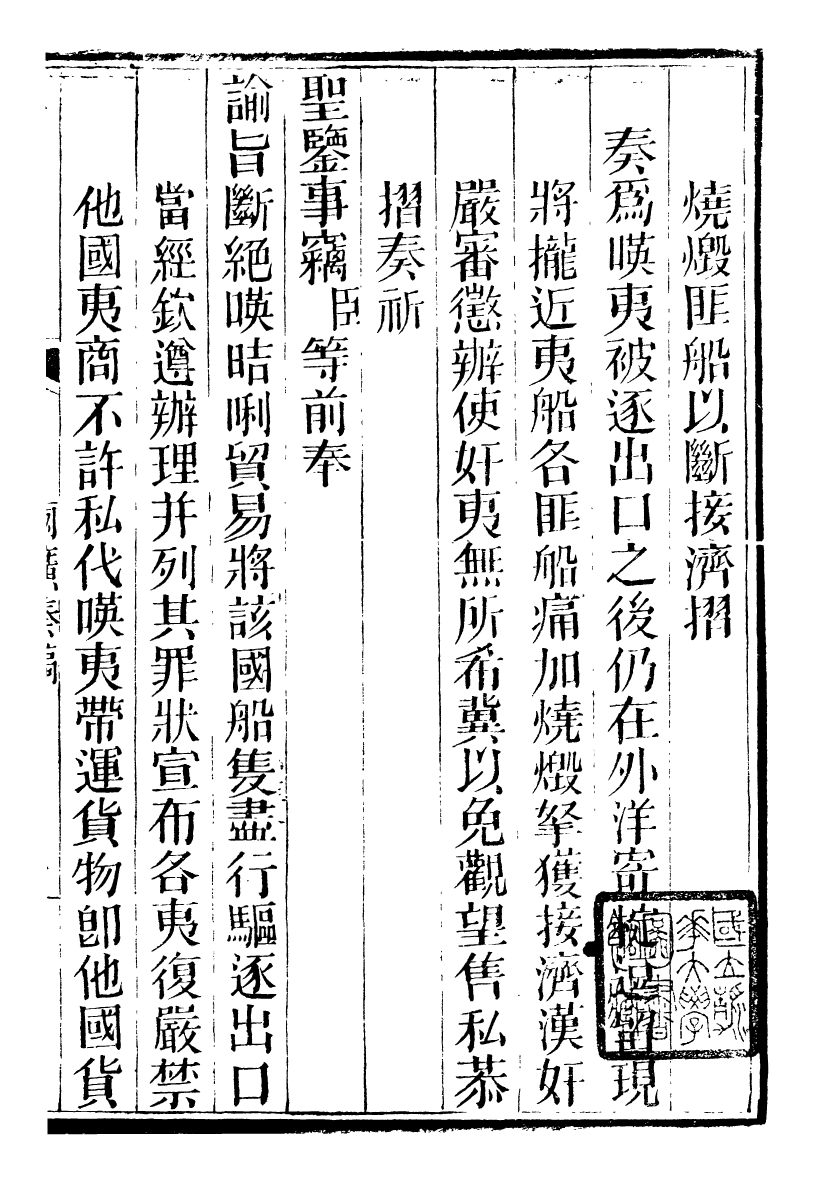 燒燬匪船以斷接濟摺
奏爲𠸄夷被逐出口之後仍在外洋寄椗逗留現
將攏近夷船各匪船痛加燒燬拏獲接濟漢奸
嚴審懲辦使奸夷無所希冀以免觀望售私恭
摺奏祈
聖鑒事竊臣等前奉
諭旨斷絕𠸄咭唎貿易將該國船隻盡行驅逐出口
當經欽遵辦理并列其罪狀宣布各夷復嚴禁
他國夷商不許私代𠸄夷帶運貨物卽他國貨
兩廣奏稿